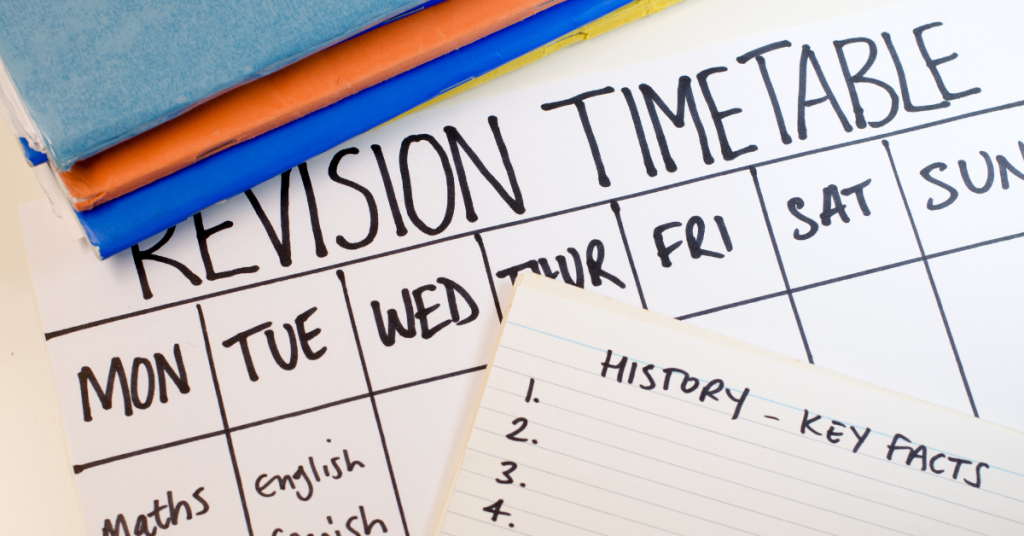 REVISION TIMETABLE
MON TUE WED THUR FRI SAT SUN
Maths English
Spanish
HISTORY - KEY FACTS
1.
2.
3.
4.